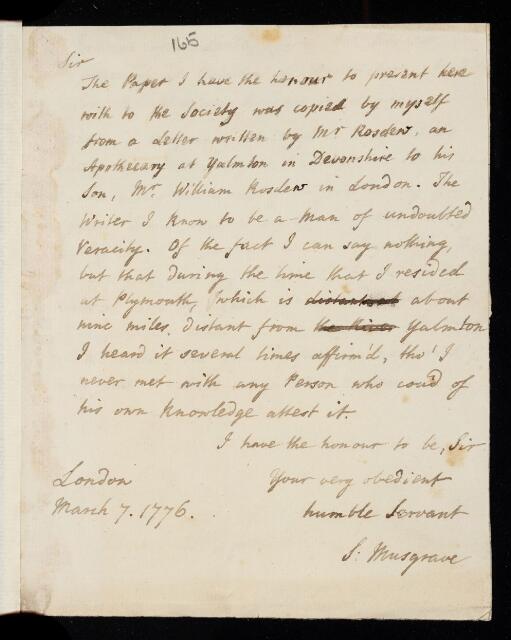 165
Sir
The Paper I have the honour to present here
with to the Society was copied by myself
from a Letter written by Mr Rosdew, an
Apothecary at Yalmton in Devonshire to his
Son, Mr. William Rosdew in London. The
Writer I know to be a Man of undoubted
Veracity. Of the fact I can say nothing,
but that during the time that I resided
at Plymouth, (which is about
nine miles distant from the River Yalmton
I heard it several times affirm'd, tho' I
never met with any Person who cou'd of
his own Knowledge attest it.
I have the honour to be, Sir
Your very obedient
humble Servant
S: Musgrave
London
March 7. 1776.